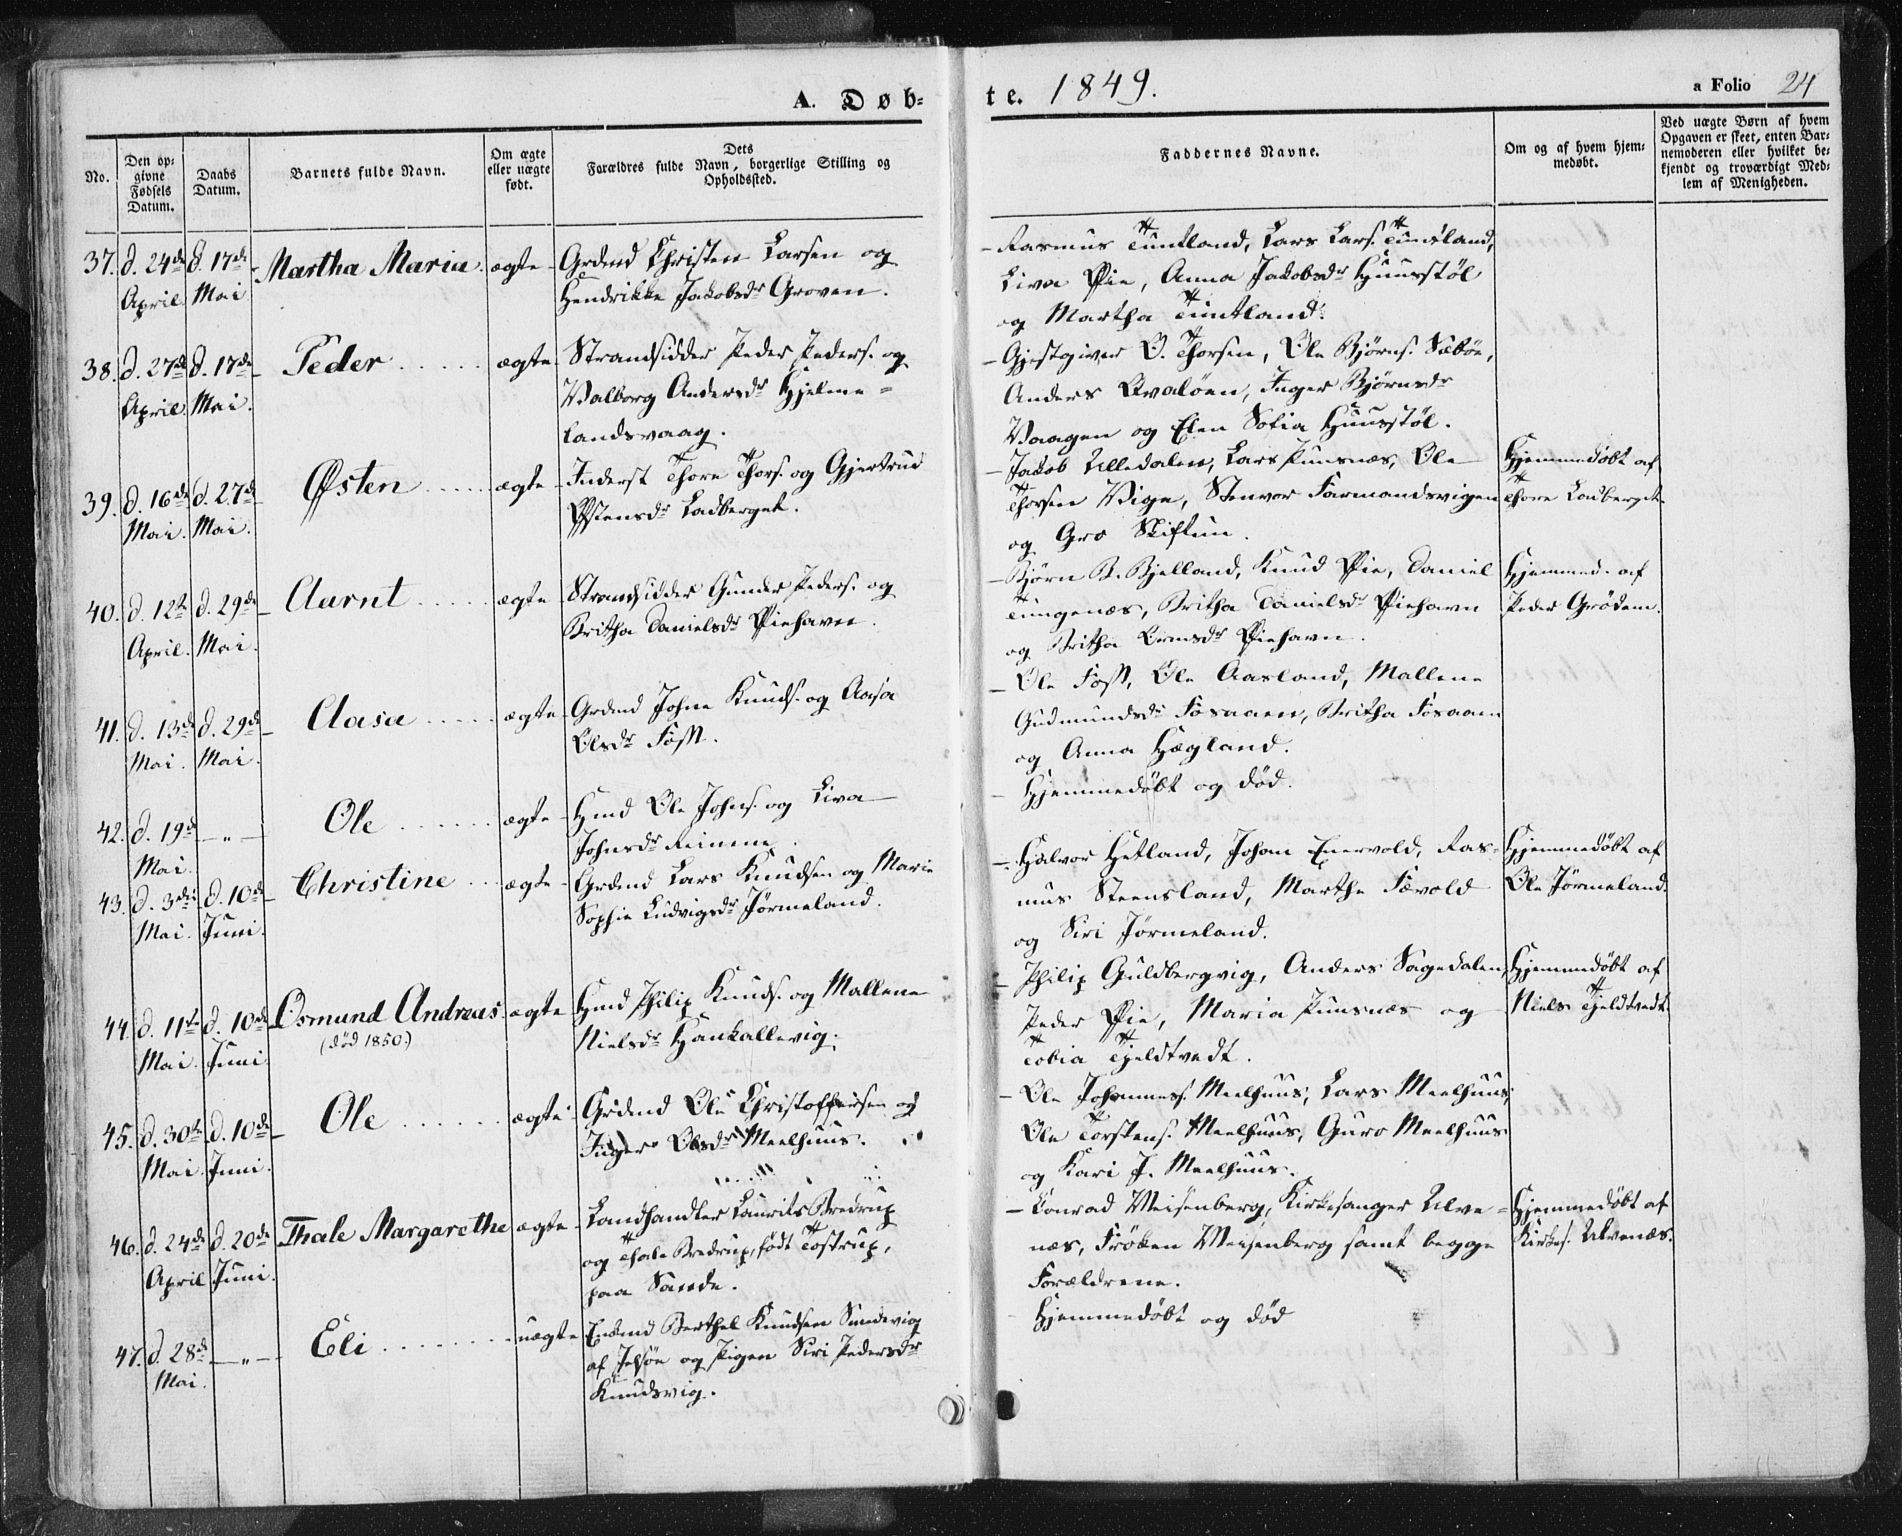 A. Døb-
te. 1849.
a Folio 24
No.
Den op-
givne
Fødsels
Datum.
Daabs
Datum.
Barnets fulde Navn.
Om ægte
eller uægte
født.
Dets
Forældres fulde Navn, borgerlige Stilling og
Opholdssted.
Faddernes Navne.
Om og af hvem hjem-
medøbt.
Ved uægte Børn af hvem
Opgaven er skeet, enten Bar-
nemoderen eller hvilket be-
kjendt og troværdigt Med-
lem af Menigheden.
37. d. 24de April d. 17de Mai Martha Maria. ægte
Grdmd Christen Larsen og
Hendrikke Jakobsdr Groven.
Rasmus Tuntland, Lars Lars. Tuntland,
Liva Øie, Anna Jakobsdr Huusstøl
og Martha Tuntland.
38. d. 27de April. d. 17de Mai. Peder ..... ægte
Strandsidder Peder Peders. og
Valborg Andersdr Hjelme-
landsvaag.
Gjestgiver O. Thorsen, Ole Bjørns. Sæbøe,
Anders Qvaløen, Inger Bjørnsdr
Vaagen og Elen Sofia Huusstøl.
39. d. 16de Mai. d. 27de Mai. Østen ..... ægte
Inderst Thore Thors. og Gjertrud
Østensdr Ladberget.
Jakob Ulledalen, Lars Puntsnæs, Ole
Thorsen Vige, Stenvor Farmandsvigen
og Gro Skiftun.
Hjemmedøbt af
Thore Ladberget.
40. d. 12te April. d. 29de Mai. Aarnt ..... ægte
Strandsidder Gunder Peders. og
Britha Danielsdr Øiehavn.
Bjørn B. Bjelland, Knud Øie, Daniel
Tungenæs, Britha Danielsdr Øiehavn
og Britha Ormsdr Øiehavn.
Hjemmed. af
Peder Grødem.
41. d. 13de Mai. d. 29de Mai. Aasa ..... ægte
Grdmd Johne Knuds. og Aasa
Olsdr Foss.
Ole Foss, Ole Aasland, Mallene
Gudmundsdr Fosaaen, Britha Fosaaen
og Anna Hægland.
42. d. 19de Mai. — " — Ole ...... ægte
Hmd Ole Johns. og Liva
Johnsdr Reinene.
Hjemmedøbt og død.
43. d. 3die Mai. d. 10de Juni. Christine ... ægte
Grdmd Lars Knudsen og Marie
Sophie Ludvigsdr Jørmeland.
Halvor Hetland, Johan Enervold, Ras-
mus Steensland, Marthe Fævold
og Siri Jørmeland.
Hjemmedøbt af
Ole Jørmeland.
44. d. 11te Mai. d. 10de Juni Osmund Andreas ægte
(død 1850.)
Hmd Philip Knuds. og Mallene
Nielsdr Hankallevig.
Philip Guldbergvig, Anders Sagedalen,
Peder Øie, Maria Puntsnæs og
Tobia Tjeldtvedt.
Hjemmedøbt af
Niels Tjeldtvedt.
45. d. 30te Mai. d. 10de Juni. Ole ...... ægte
Grdmd Ole Christoffersen og
Inger Olsdr Meelhuus.
Ole Johannes. Meelhuus, Lars Meelhuus,
Ole Torstens. Meelhuus, Guro Meelhuus
og Kari J. Meelhuus.
46. d. 24de April d. 20de Juni. Thale Margarethe ægte
Landhandler Laurits Bredrup
og Thale Bredrup, født Tostrup,
paa Sande.
Conrad Meisenberg, Kirkesanger Ulve-
næs, Frøken Meisenberg samt begge
Forældrene.
Hjemmedøbt af
Kirkes. Ulvenæs.
47. d. 28de Mai. — " — Eli ....... uægte
Enkmd Berthel Knudsen Sundevig
af Jelsøe og Pigen Siri Pedersdr
Knudsvig.
Hjemmedøbt og død